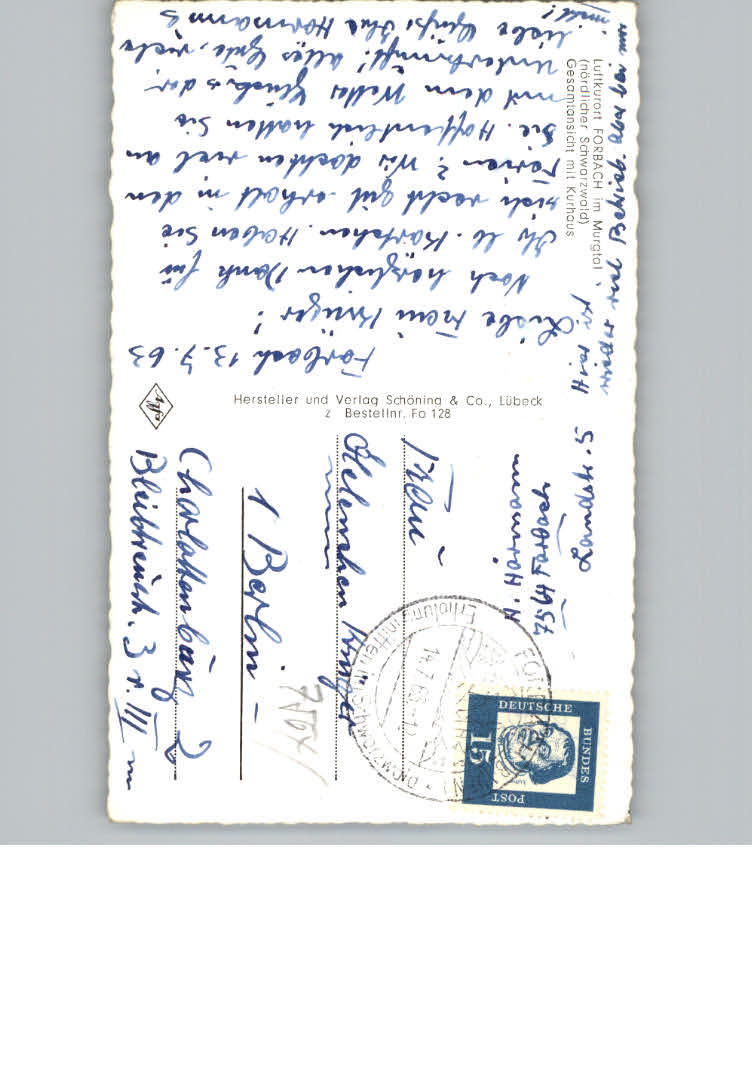 Luftkurort FORBACH im Murgtal
(nördlicher Schwarzwald)
Gesamtansicht mit Kurhaus
Forbach 13.7.63
Liebe Frau Krüger!
Noch herzlichen Dank für
Ihr lb. Kärtchen. Haben Sie
sich recht gut erholt in den
Ferien? Wir dachten viel an
Sie. Hoffentlich hatten Sie
mit dem Wetter Glück u. der
Unterkunft! Alles Gute, viele
liebe Grüße Ihre Hormanns
Hier ist
wieder viel Betrieb, aber bei uns
nicht!
Hersteller und Verlag Schöning & Co., Lübeck
z Bestellnr. Fo 128
H. Hormann
7564 Forbach
Landstr. 5
Frau
Helenchen Krüger
1 Berlin -
Charlottenburg 2
Bleibtreustr. 3 v. III
7564
14.7.63
DEUTSCHE
BUNDES
POST
15